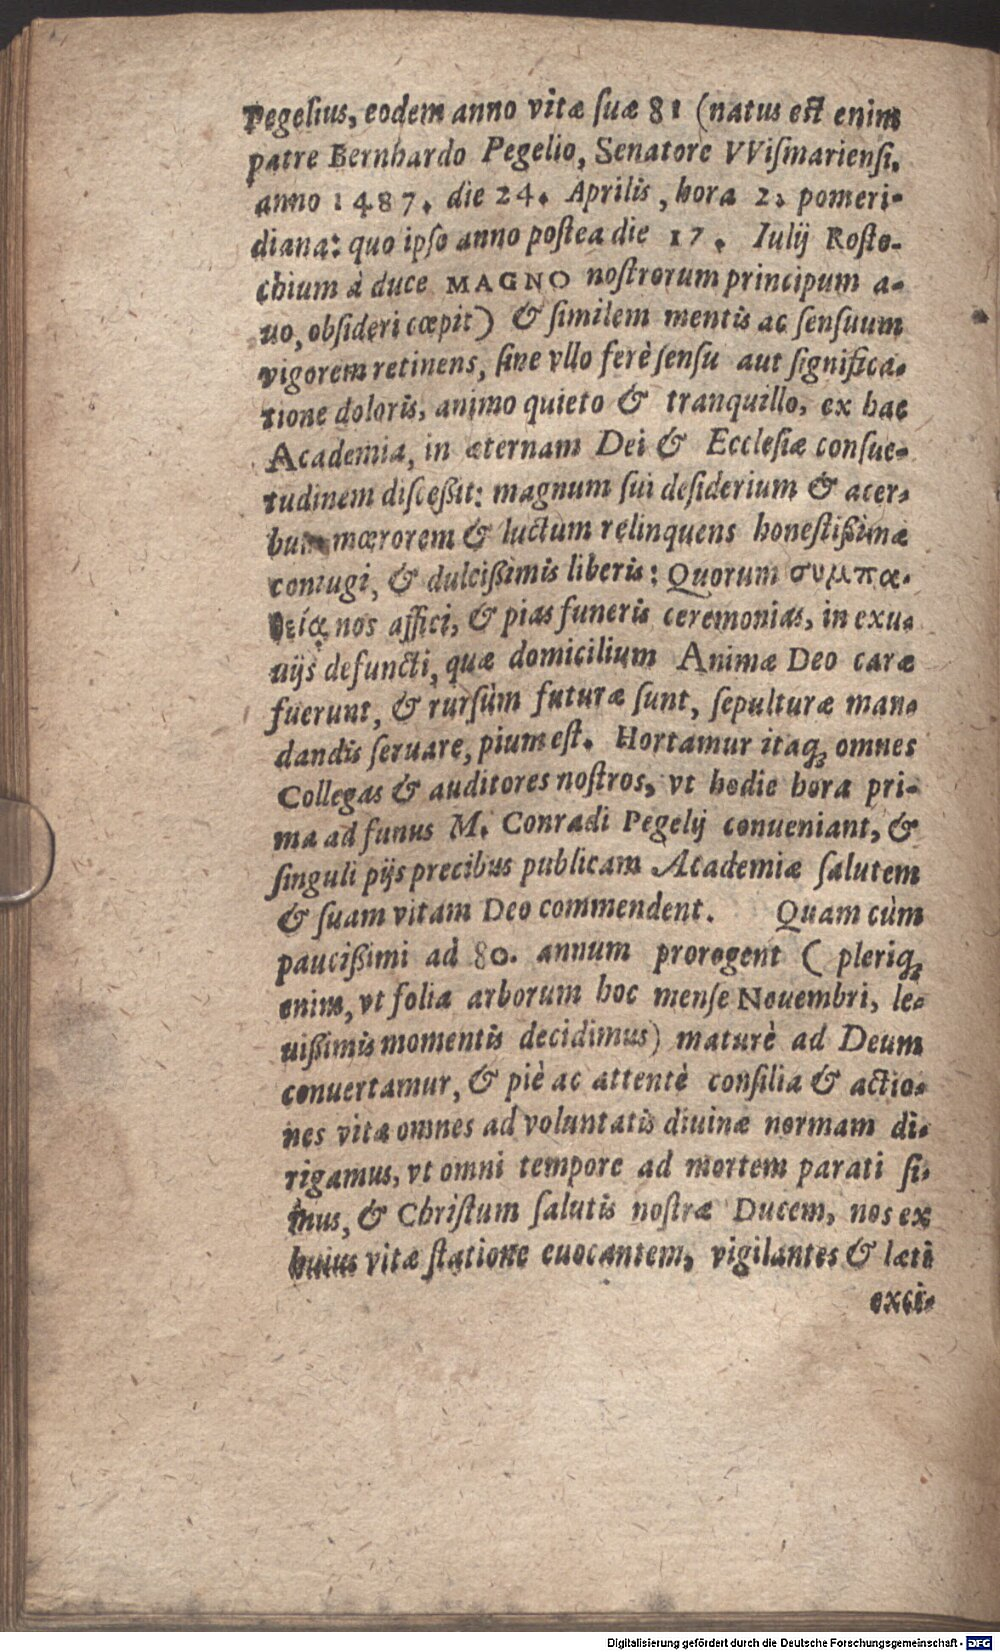 Pegelius, eodem anno vitæ ſuæ 81 (natus eſt enim
patre Bernhardo Pegelio, Senatore VViſmarienſi,
anno 1487. die 24. Aprilis, hora 2, pomeri-
diana: quo ipſo anno poſtea die 17. Iulij Roſto-
chium à duce MAGNO noſtrorum principum a-
uo, obſideri cœpit) & ſimilem mentis ac ſenſuum
vigorem retinens, ſine vllo ferè ſenſu aut ſignifica-
tione doloris, animo quieto & tranquillo, ex hac
Academia, in æternam Dei & Eccleſiæ conſue-
tudinem diſceßit: magnum ſui deſiderium & acer-
bum mœrorem & luctum relinquens honeſtißimæ
coniugi, & dulcißimis liberis: Quorum συμπα-
θείᾳ nos affici, & pias funeris ceremonias, in exu-
uijs defuncti, quæ domicilium Animæ Deo caræ
fuerunt, & rurſùm futuræ ſunt, ſepulturæ man-
dandis ſeruare, pium eſt. Hortamur itaq; omnes
Collegas & auditores noſtros, vt hodie hora pri-
ma ad funus M. Conradi Pegelij conueniant, &
ſinguli pijs precibus publicam Academiæ ſalutem
& ſuam vitam Deo commendent. Quam cùm
paucißimi ad 80. annum prorogent ( pleriq;
enim, vt folia arborum hoc menſe Nouembri, le-
uißimis momentis decidimus) maturè ad Deum
conuertamur, & piè ac attentè conſilia & actio-
nes vitæ omnes ad voluntatis diuinæ normam di-
rigamus, vt omni tempore ad mortem parati ſi-
mus, & Chriſtum ſalutis noſtræ Ducem, nos ex
huius vitæ ſtatione euocantem, vigilantes & læti
exci-
Digitalisierung gefördert durch die Deutsche Forschungsgemeinschaft - DFG